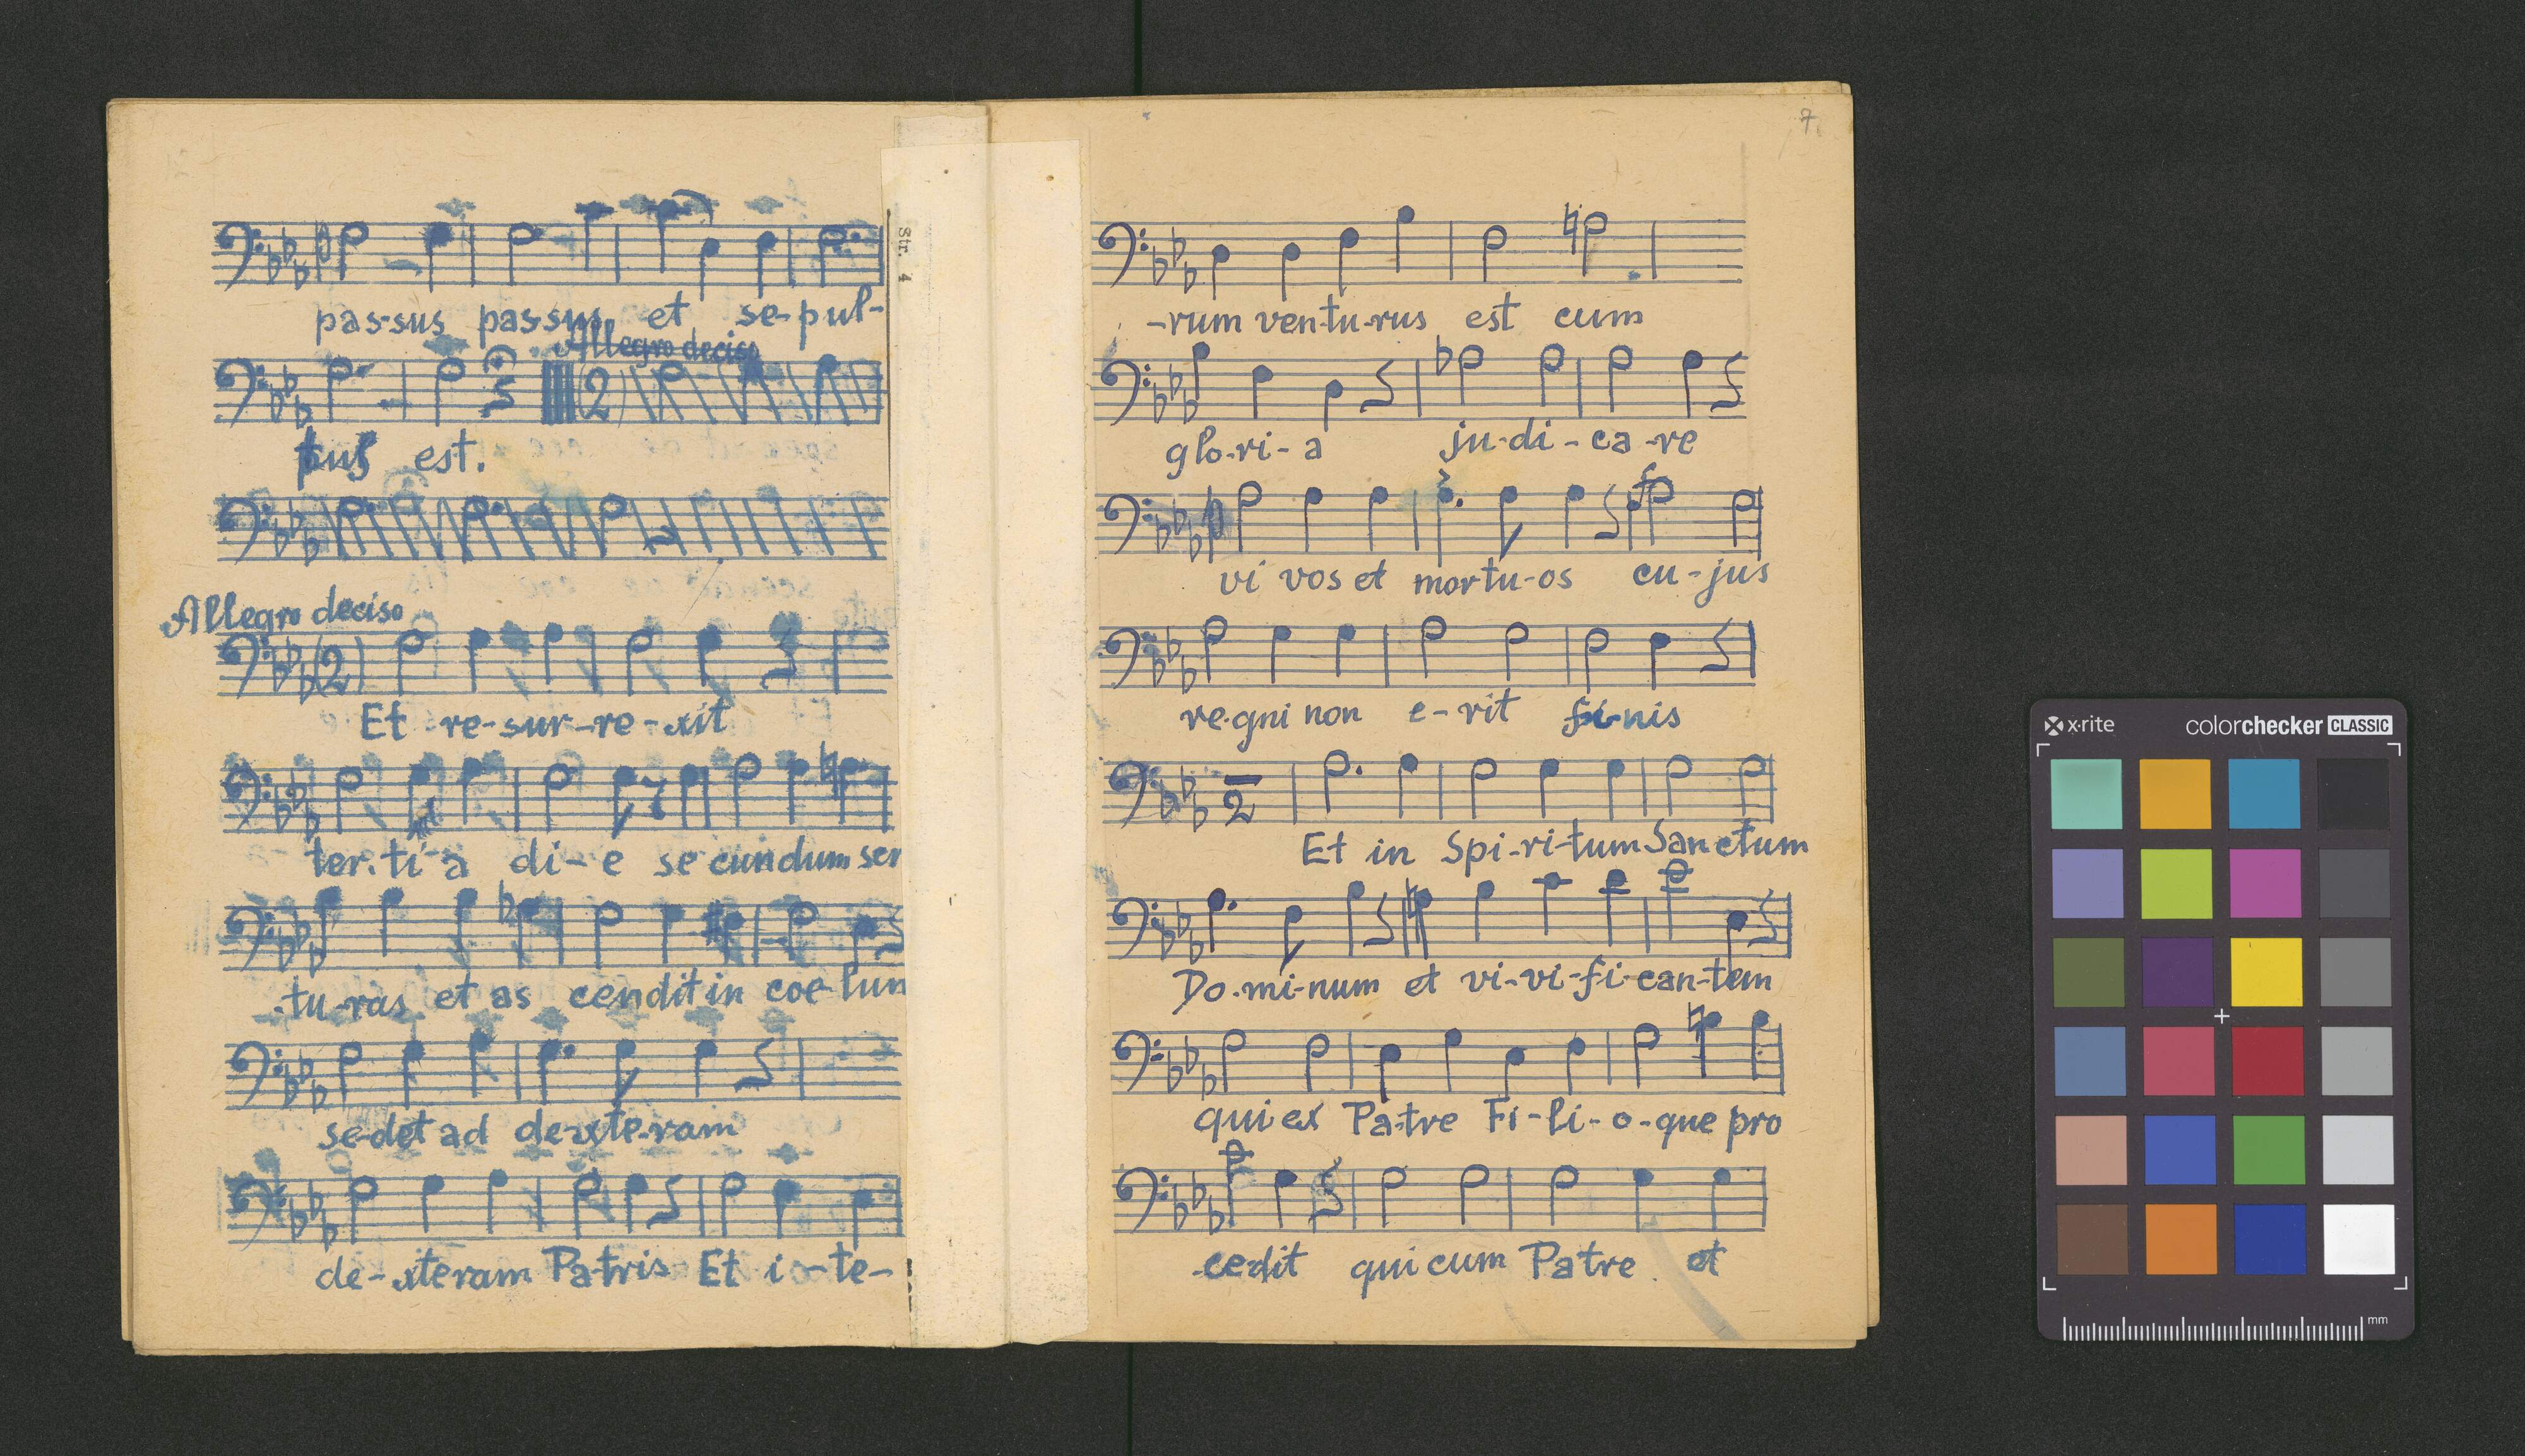 pas-sus passus et se-pul-
Allegro deciso
tus est.
Allegro deciso
(2)
Et re-sur-re-xit
ter-ti-a di-e se cundum scr
-tu-ras et as cendit in coe-lum
se-det ad de-xte-ram
de-xteram Patris Et i-te-
Str. 4
7
-rum ven-tu-rus est cum
glo-ri-a ju-di-ca-re
f
vi vos et mortu-os cu-jus
re-gni non e-rit fi-nis
2
Et in Spi-ri-tum Sanctum
Do-mi-num et vi-vi-fi-can-tem
qui ex Pa-tre Fi-li-o-que pro
-cedit qui cum Patre et
x-rite colorchecker CLASSIC
mm